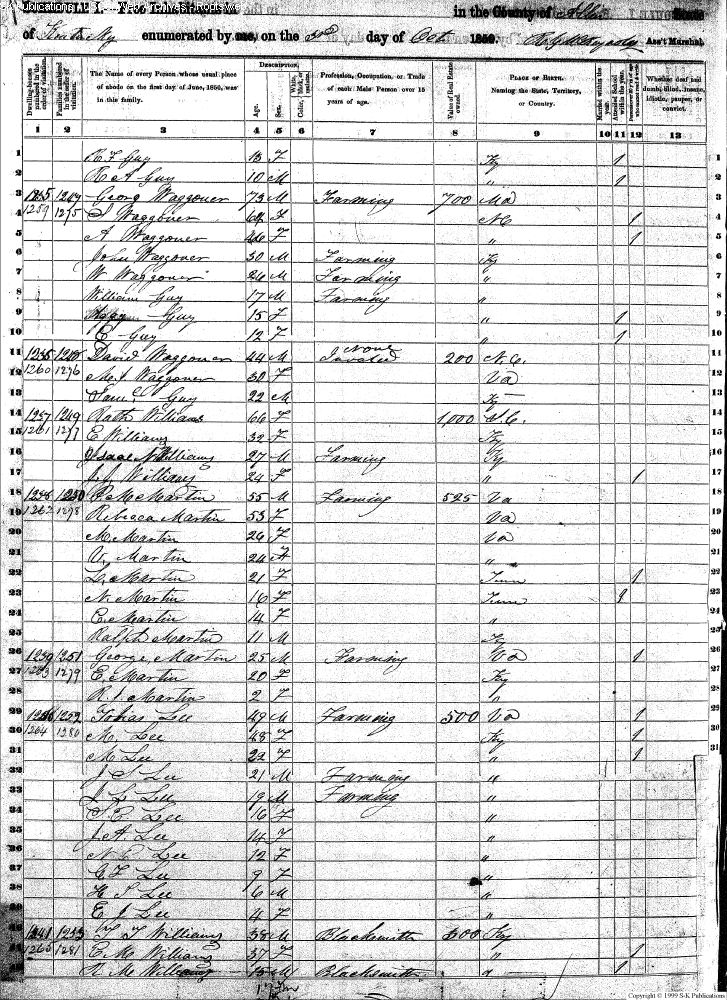 in the County of Allen State
of Kentucky enumerated by me, on the 3rd day of Oct 1850. Ass't Marshal.
Dwelling-houses numbered in the order of visitation.
Families numbered in the order of visitation.
The Name of every Person whose usual place of abode on the first day of June, 1850, was in this family.
DESCRIPTION.
Age.
Sex.
White, black, or mulatto. Color,
Profession, Occupation, or Trade of each Male Person over 15 years of age.
Value of Real Estate owned.
PLACE OF BIRTH. Naming the State, Territory, or Country.
Married within the year.
Attended School within the year.
Whether deaf and dumb, blind, insane, idiotic, pauper, or convict.
1 2 3 4 5 6 7 8 9 10 11 12 13
1 R F Guy 13 F Ky 1 1
2 R A Guy 10 M " 1 2
3 1247 Georg Waggoner 73 M Farming 700 Md 3
4 1259 1275 S Waggoner 64 F NC 1 4
5 A Waggoner 46 F " 1 5
6 John Waggoner 30 M Farming Ky 6
7 W Waggoner 26 M Farming " 7
8 William Guy 17 M Farming " 8
9 Guy 15 F " 1 9
10 C Guy 12 F " 1 10
11 David Waggoner 44 M None 200 N.C. 11
12 1260 1276 M. J Waggoner 30 F Va 12
13 Saml Guy 22 M Ky 13
14 1237 1249 Ruth Williams 66 F 1,000 14
15 1261 1277 E Williams 32 F Ky 15
16 Isaac N Williams 27 M Farming Ky 16
17 J. J. Williams 24 F " 1 17
18 1250 Martin 55 M Farming 525 Va 18
19 1262 1278 Rebecca Martin 53 F Va 19
20 M Martin 26 F Va 20
21 V. Martin 24 F " 21
22 L. Martin 21 F Tenn 1 22
23 N. Martin 16 F Tenn 23
24 E. Martin 14 F " 24
25 Ralph Martin 11 M Ky 25
26 1239 1251 George Martin 25 M Farming Va 1 26
27 1263 1279 E. Martin 20 F Ky 27
28 R. J. Martin 2 F " 28
29 1252 Tobias Lee 49 M Farming 500 Va 1 29
30 1264 1280 M. Lee 48 F Ky 1 30
31 M Lee 22 F " 1 31
32 J S Lee 21 M Farming "
33 J L Lee 19 M Farming " 33
34 S. E Lee 16 F " 34
35 J. A. Lee 14 F " 35
36 N E Lee 12 F " 36
37 C F Lee 9 F " 37
38 H S Lee 6 M " 38
39 E J Lee 4 F " 39
40 1241 1253 T Williams 38 M Blacksmith 300 Ky 40
41 1265 1281 E M Williams 37 F " 1 41
M Williams 15 M Blacksmith " 1
Copyright © 1999 S-K Publications